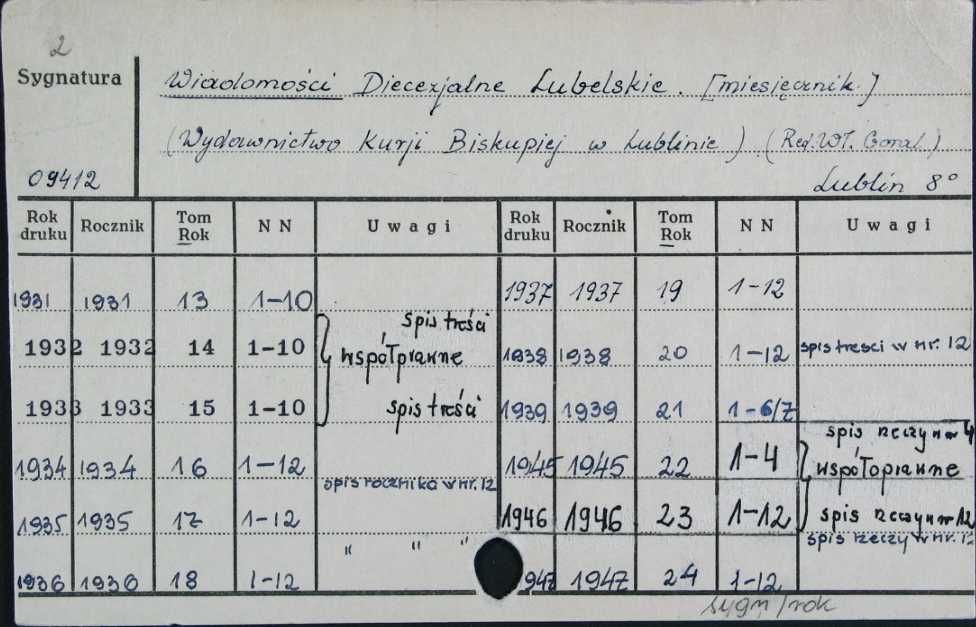 2
Sygnatura
Wiadomości Diecezjalne Lubelskie. [miesięcznik.]
(Wydawnictwo Kurji Biskupiej w Lublinie) (Red. Wł. Goral)
09412
Lublin 8°
Rok druku Rocznik Tom Rok N N Uwagi Rok druku Rocznik Tom Rok N N Uwagi
1931 1931 13 1-10 1937 1937 19 1-12
1932 1932 14 1-10 spis treści współprawne 1938 1938 20 1-12 spis treści w nr. 12
1933 1933 15 1-10 spis treści 1939 1939 21 1-6/7
1934 1934 16 1-12 spis rocznika w nr. 12 1945 1945 22 1-4 spis rzeczy w nr 4 współoprawne
1935 1935 17 1-12 " " " 1946 1946 23 1-12 spis rzeczy w nr 12
spis rzeczy w nr. 12
1936 1936 18 1-12 1947 1947 24 1-12
sygn/rok